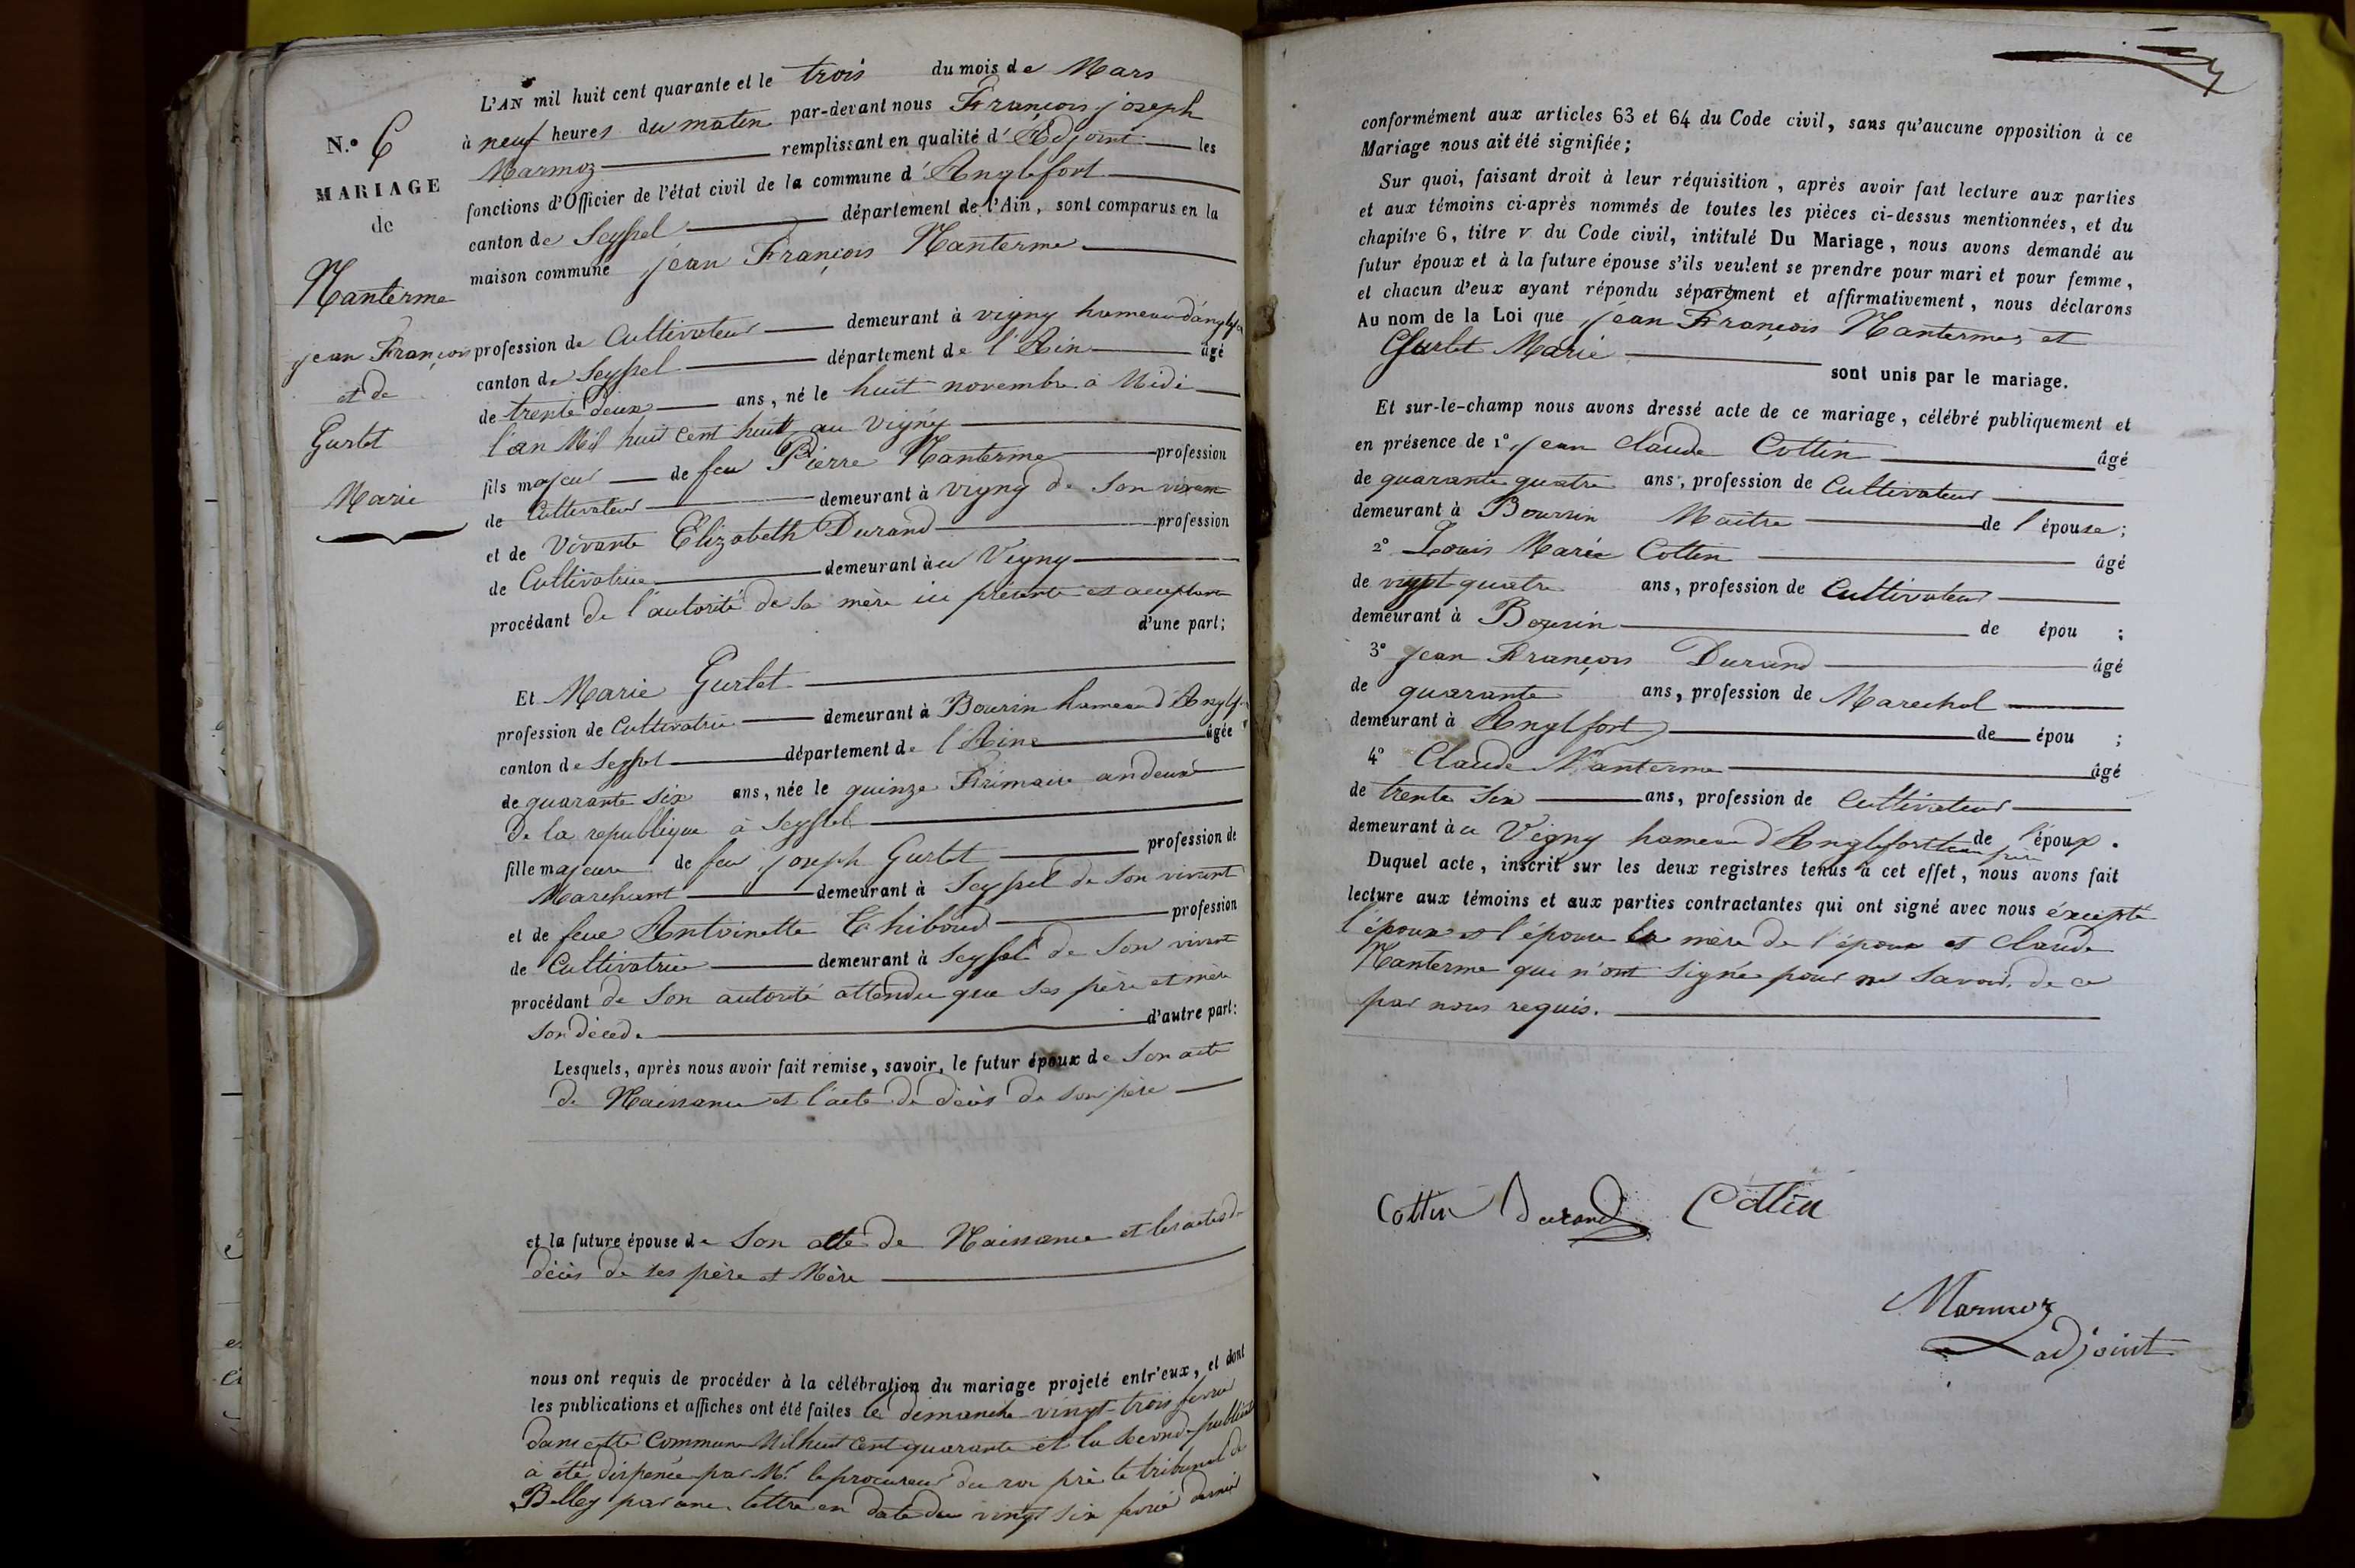 N.º 6
MARIAGE
de
Nanterme
jean François
et de
Gurlet
Marie
L'AN mil huit cent quarante et le trois du mois de Mars
à neuf heures du matin par-devant nous François joseph
Marmoz remplissant en qualité d'Adjoint les
fonctions d'Officier de l'état civil de la commune d'Anglefort
canton de Seyssel département de l'Ain, sont comparus en la
maison commune jean François Nanterme
profession de Cultivateur demeurant à vigny hameau d'anglef
canton de Seyssel département de l'Ain âgé
de trente deux ans, né le huit novembre à Midi
l'an Mil huit Cent huit au vigny
fils majeur de feu Pierre Nanterme profession
de Cultivateur demeurant à vigny de Son vivant
et de Vivante Elizabeth Durand profession
de Cultivatrice demeurant à u Vigny
procédant de l'autorité de sa mère ici présente et acceptante
d'une part;
Et Marie Gurlet
profession de Cultivatrice demeurant à Bourin hameau d'Anglf
canton de Seyssel département de l'Ain âgée
de quarante six ans, née le quinze Frimaire an deuxè
De la republique à Seyssel
fille majeure de feu joseph Gurlet profession de
Marchant demeurant à Seyssel de Son vivant
et de feue Antoinette Thiboud profession
de Cultivatrice demeurant à Seyssel de Son vivant
procédant de Son autorité attendu que ses père et mère
Son décédé d'autre part:
Lesquels, après nous avoir fait remise, savoir, le futur époux de Son acte
de Naissance et l'acte de décès de son père
et la future épouse de Son acte de Naissance et les actes de
décès de ses père et Mère
nous ont requis de procéder à la célébration du mariage projeté entr'eux, et dont
les publications et affiches ont été faites le dimanche vingt-trois fevrié
dans cette Commune Mil huit Cent quarante et la Seconde publicat
à été dispensée par Mr le procureur du roi près le tribunal de
Belley par une lettre en date du vingt six fevrié dernié
conformément aux articles 63 et 64 du Code civil, sans qu'aucune opposition à ce
Mariage nous ait été signifiée;
Sur quoi, faisant droit à leur réquisition, après avoir fait lecture aux parties
et aux témoins ci-après nommés de toutes les pièces ci-dessus mentionnées, et du
chapitre 6, titre v du Code civil, intitulé Du Mariage, nous avons demandé au
futur époux et à la future épouse s'ils veulent se prendre pour mari et pour femme,
et chacun d'eux ayant répondu séparément et affirmativement, nous déclarons
Au nom de la Loi que jean François Nanterme, et
Gurlet Marie sont unis par le mariage.
Et sur-le-champ nous avons dressé acte de ce mariage, célébré publiquement et
en présence de 1º jean Claude Cottin âgé
de quarante quatre ans, profession de Cultivateur
demeurant à Bourrin Maître de l'épouse;
2º Louis Marie Cottin âgé
de vingt quatre ans, profession de Cultivateur
demeurant à Bourin de épou ;
3º jean François Durand âgé
de quarante ans, profession de Marechal
demeurant à Anglfort de épou ;
4º Claude Nanterme âgé
de trente Six ans, profession de Cultivateur
demeurant à u Vigny hameau d'Anglefort de l'époux.
Duquel acte, inscrit sur les deux registres tenus à cet effet, nous avons fait
lecture aux témoins et aux parties contractantes qui ont signé avec nous éxcepté
l'époux et l'épouse la mère de l'époux et Claude
Nanterme qui n'ont signé pour ne Savoir, de ce
par nous requis.
Cottin Durand Cottin
Marmoz
adjoint